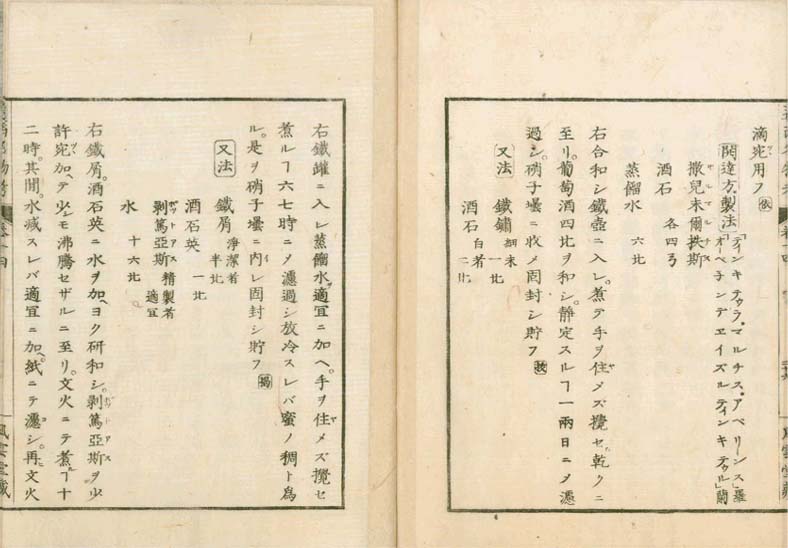 滴宛用フ
開達方製法「ティンキテゥラ、マルチス、アペリーンス」羅
「オーペ子ンデ、エイズルティンキテゥル」蘭
撒兒末爾
酒石 各四弓
蒸餾水 六比
右合和シ鐵壺ニ入レ煮テ手ヲ住メズ攪セ乾クニ
至リ葡萄酒四比ヲ和シ靜定スルヿ一兩日ニメ濾
過シ硝子壜ニ收メ固封シ貯フ
又法 鐵鏽 細末 一比
酒石 白者 二比
右鐵罐ニ入レ蒸餾水適宜ニ加ヘ手ヲ住メズ攪セ
煮ルヿ六七時ニメ濾過シ放冷スレバ蜜ノ稠ト爲
ル是ヲ硝子壜ニ内レ固封シ貯フ
又法 鐵屑 淨潔者 半比
酒石英 一比
剥篤亞斯 精製者 適宜
水 十六比
右鐵屑酒石英ニ水ヲ加ヘヨク研和シ剥篤亞斯ヲ少
許宛加ヘテ少シモ沸騰セザルニ至リ文火ニテ煮ルヿ十
二時其間水減スレバ適宜ニ加ヘ紙ニテ濾シ再文火
風雲堂藏